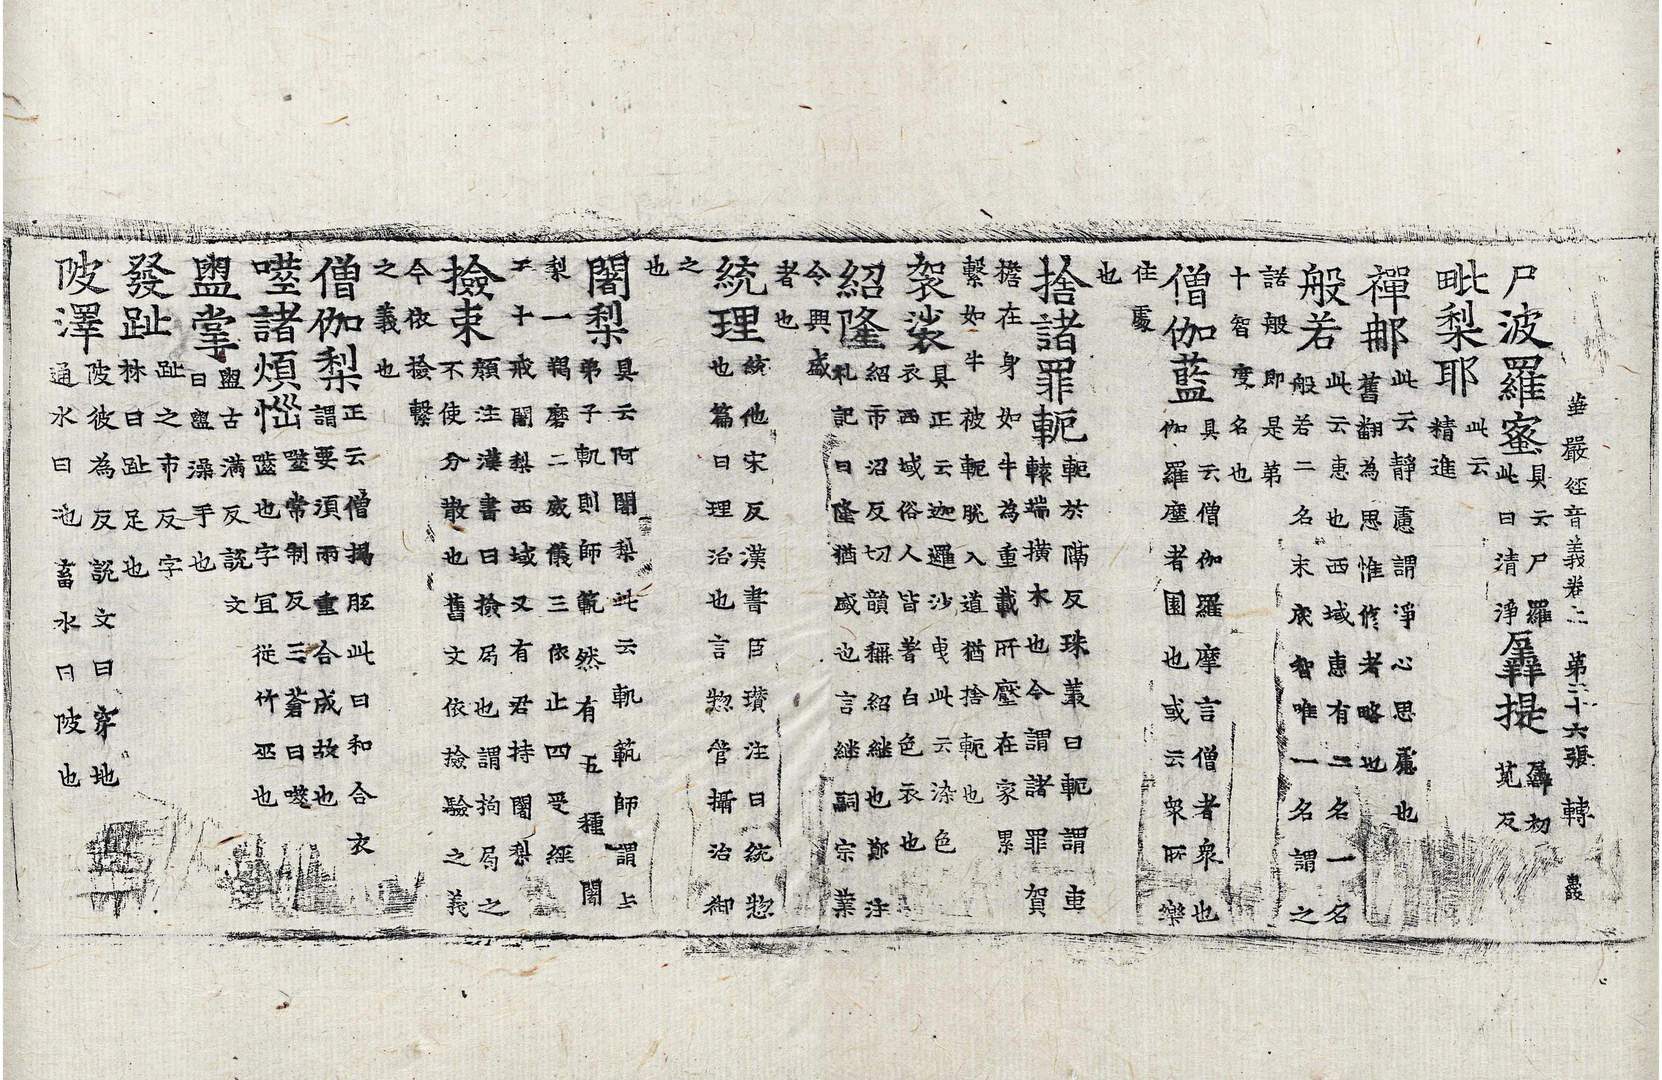 華嚴經音義卷二 第二十六張 轉
尸波羅蜜 具云尸羅
此曰清淨 羼提 羼初
莧反
毗梨耶 此云
精進
禪那 此云靜慮謂淨心思慮也
舊翻為思惟修者略也
般若 此云惠也西域惠有二名一名
般若二名末底智唯一名謂之
諾般即是第
十智度名也
僧伽藍 具云僧伽羅摩言僧者衆也
伽羅摩者園也或云衆所樂
住處
也
捨諸罪軛 軛於隔反珠叢曰軛謂車
轅端橫木也今謂諸罪賀
擔在身如牛為重載所壓在家累
繫如牛被軛脫入道猶捨軛也
袈裟 具正云迦邏沙曳此云染色
衣西域俗人皆著白色衣也
紹隆 紹市沼反切韻稱紹継也鄭注
礼記曰隆猶盛也言継嗣宗業
令興盛
者也
統理 統他宋反漢書臣瓚注曰統惣
也篇曰理治也言惣管攝治御
之
也
闍梨 具云阿闍梨此云軌範師謂与
弟子軌則師範然有五種闍
梨一羯磨二威儀三依止四受經
五十戒闍梨西域又有君持闍梨
撿束 顏注漢書曰撿局也謂拘局之
不使分散也舊文依撿驗之義
今依撿繫
之義也
僧伽梨 正云僧揭胝此曰和合衣
謂要須兩重合成故也
噬諸煩惱 噬常制反三蒼曰噬
噬也字冝從竹巫也
盥掌 盥古滿反說文
曰盥澡手也
發趾 趾之市反字
林曰趾足也
陂澤 陂彼為反說文曰穿地
通水曰池畜水曰陂也